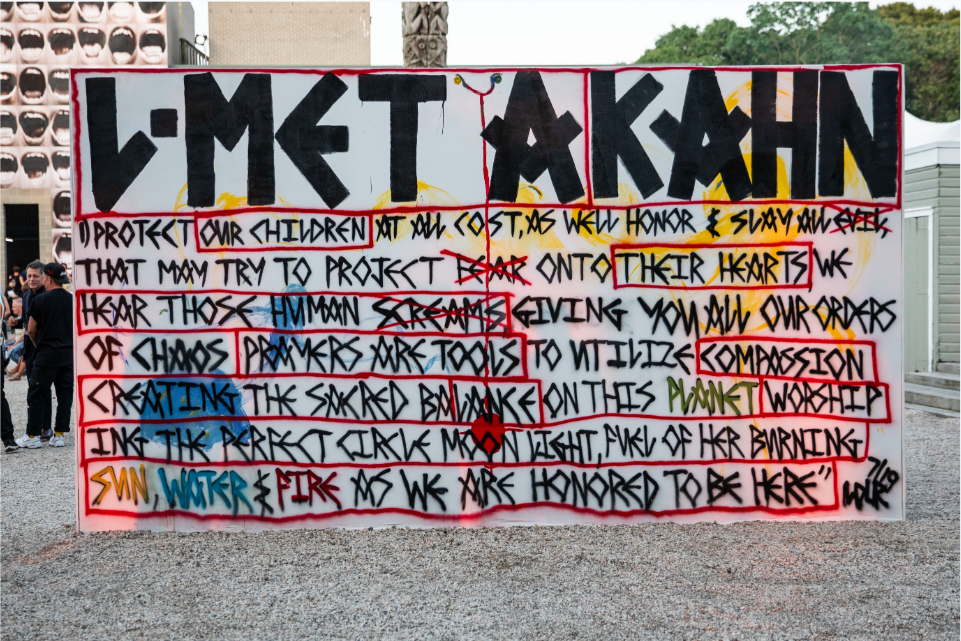 L·MET AKAHN
"PROTECT OUR CHILDREN AT ALL COST, AS WELL HONOR & SLAY ALL EVIL,
THAT MAY TRY TO PROJECT FEAR ONTO THEIR HEARTS WE
HEAR THOSE HUMAN SCREAMS GIVING YOU ALL OUR ORDERS
OF CHAOS PRAYERS ARE TOOLS TO UTILIZE COMPASSION
CREATING THE SACRED BALANCE ON THIS PLANET WORSHIP
ING THE PERFECT CIRCLE MOON LIGHT, FUEL OF HER BURNING
SUN, WATER & FIRE AS WE ARE HONORED TO BE HERE"